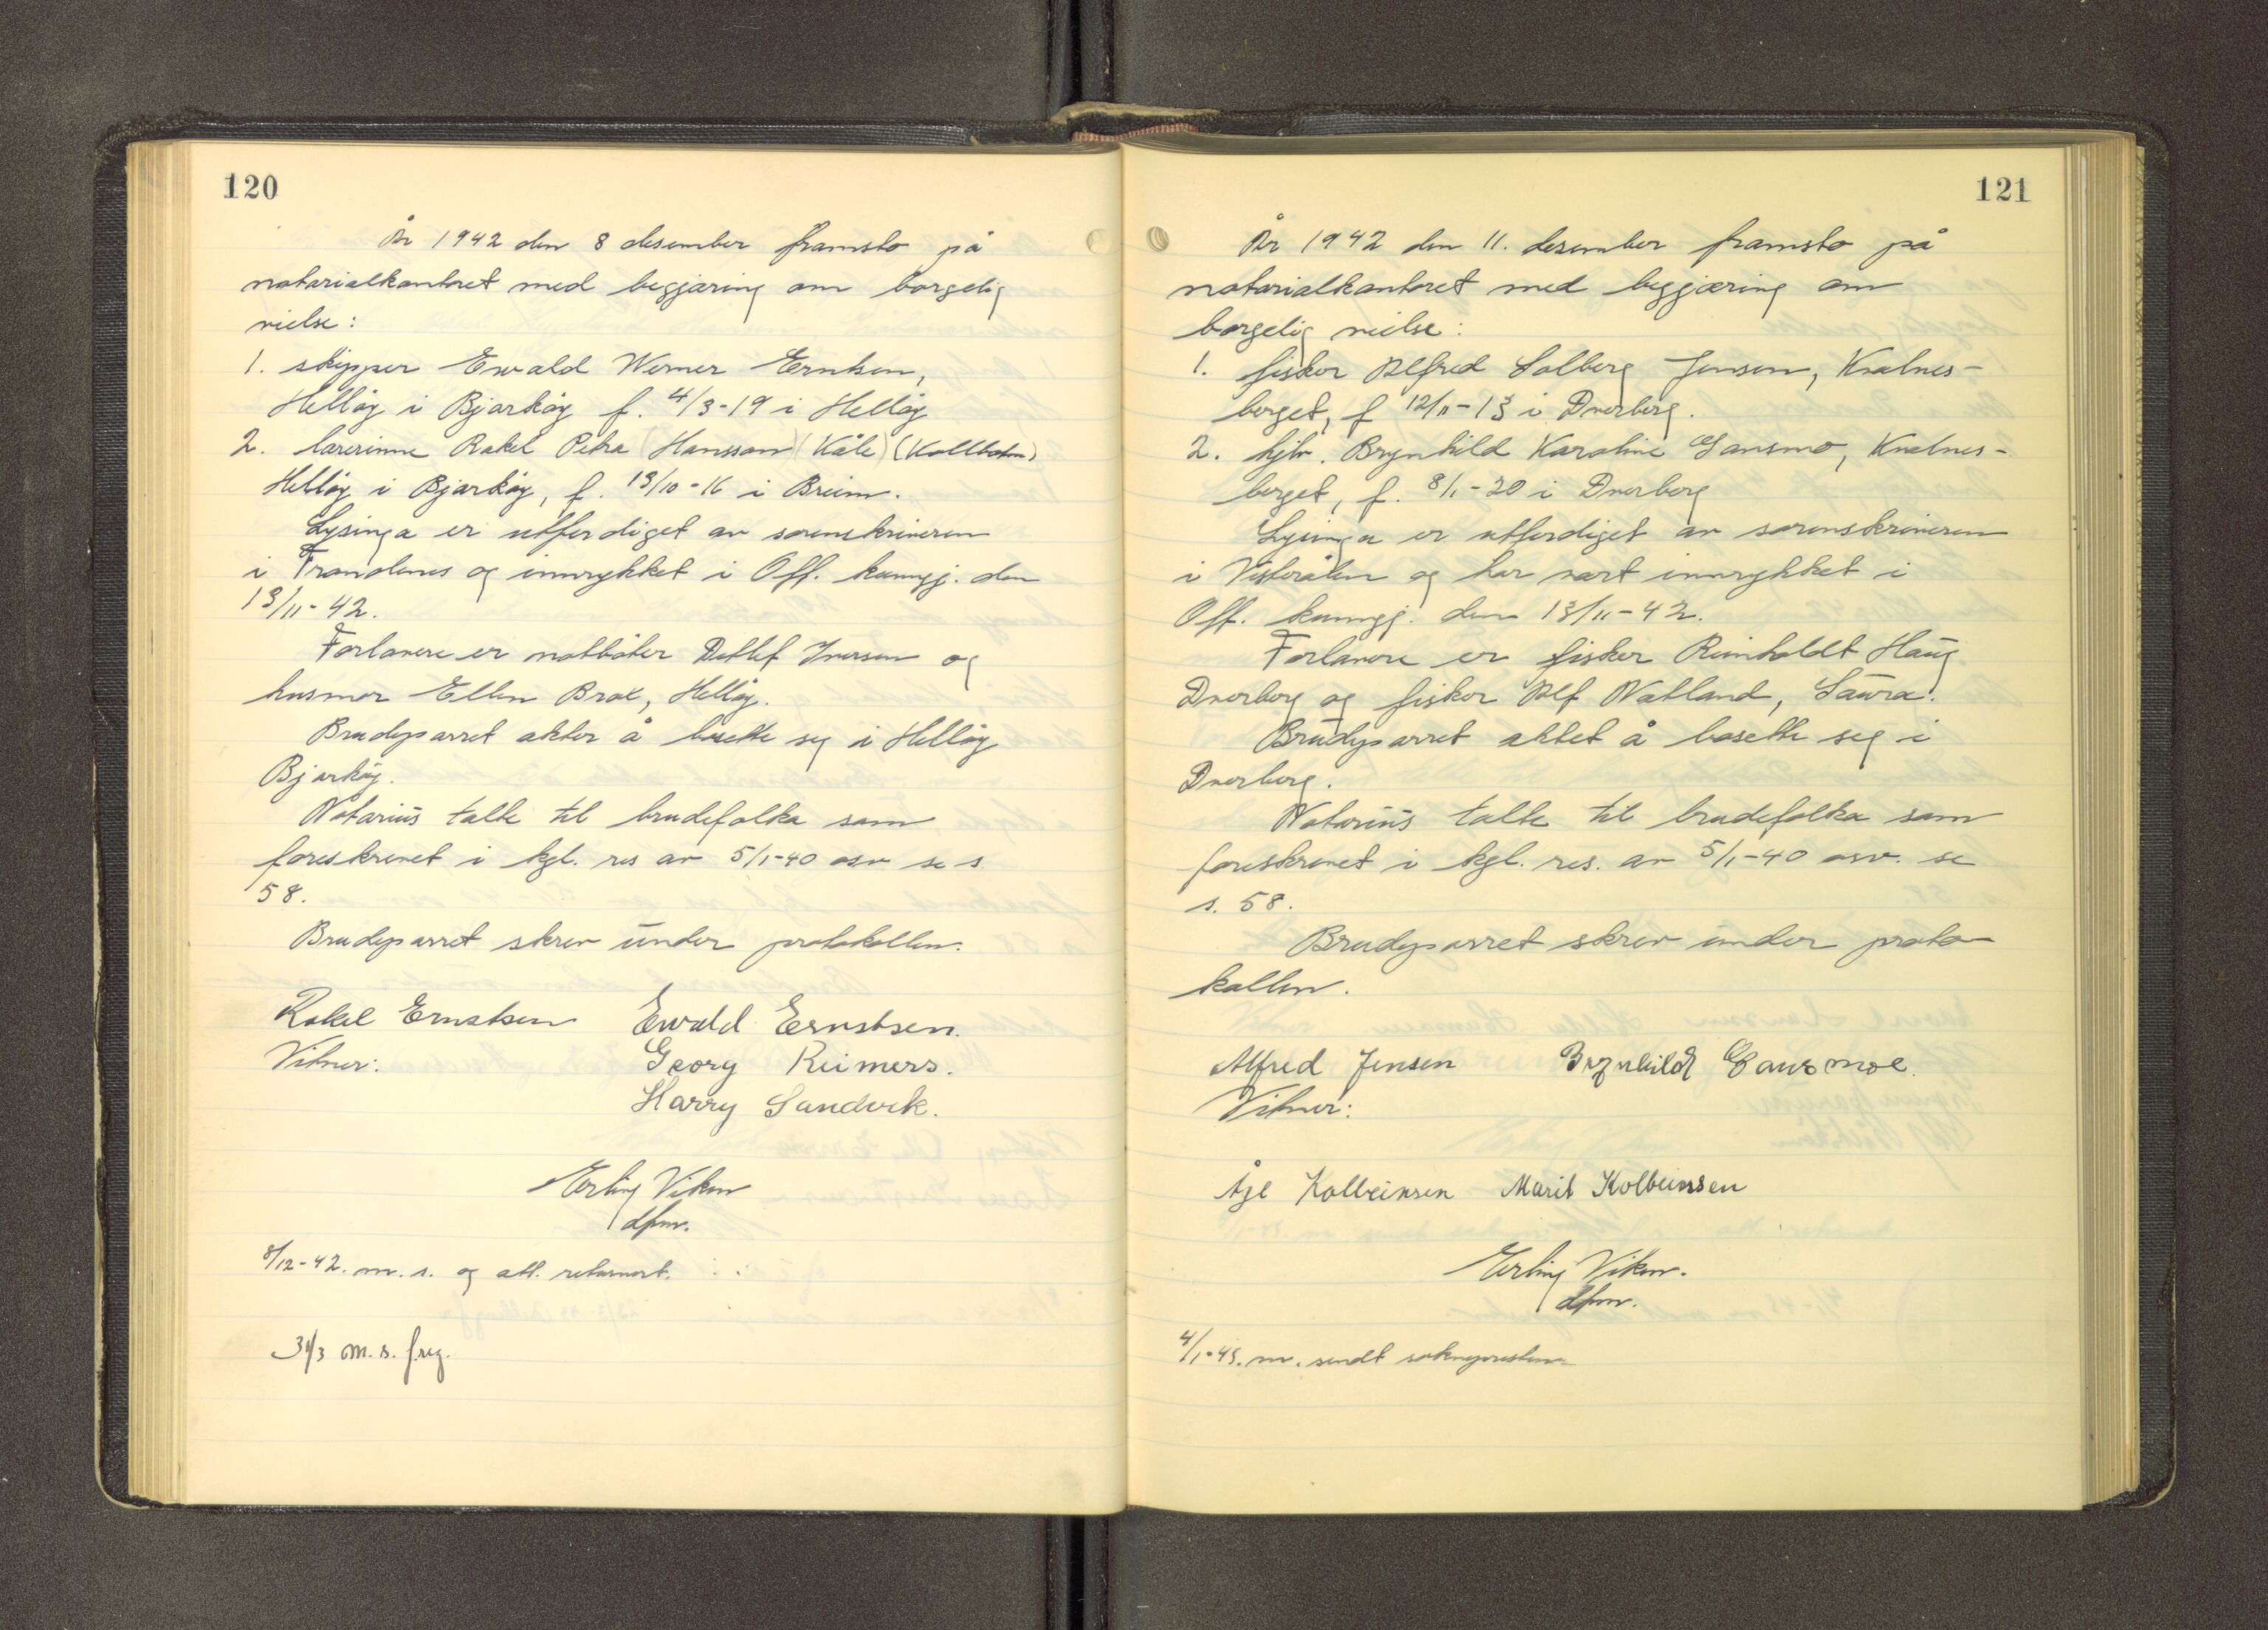 120
År 1942 den 8 desember framsto på
notarialkontoret med begjæring om borgelig
vielse:
1. skipper Ewald Werner Erntsen,
Helløy i Bjarkøy f. 4/3-19 i Helløy
2. lærerinne Rakel Petra (Hansson) (Kåle) (Kollbotn)
Helløy i Bjarkøy, f. 13/10-16 i Breim.
Lysinga er utferdiget av sorenskriveren
i Trondenes og innrykket i Off. kunngj. den
13/11-42.
Forlovere er notbøter Detlef Iversen og
husmor Ellen Brox, Helløy.
Brudeparret akter å bosette seg i Helløy
Bjarkøy.
Notarius talte til brudefolka som
foreskrevet i kgl. res av 5/1-40 osv se s.
58.
Brudeparret skrev under protokollen.
Rakel Ernstsen Ewald Ernstsen.
Vitner: Georg Reimers.
Harry Sandvik.
Erling Viken
dfm.
8/12-42. m. s. og att. returnert.
31/3 m. s. freg.
121
År 1942 den 11. desember framsto på
notarialkontoret med begjæring om
borgelig vielse:
1. fisker Alfred Solberg Jensen, Kvalnes-
berget, f 12/11-13 i Dverberg.
2. hjv. Brynhild Karoline Gansmo, Kvalnes-
berget, f. 8/1-20 i Dverberg
Lysinga er utferdiget av sorenskriveren
i Vesterålen og har vært innrykket i
Off. kunngj. den 13/11-42.
Forlovere er fisker Reinholdt Haug
Dverberg og fisker Alf Watland, Saura.
Brudeparret aktet å bosette seg i
Dverberg.
Notarius talte til brudefolka som
foreskrevet i kgl. res. av 5/1-40 osv. se
s. 58.
Brudeparret skrev under proto-
kollen.
Alfred Jensen Brynhild Gansmoe.
Vitner:
Åge Kolbeinsen Marit Kolbeinsen
Erling Viken.
dfm.
4/1-43. m. sendt soknepresten